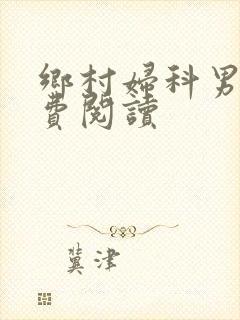 鄉村婦科男
費閱讀
冀津